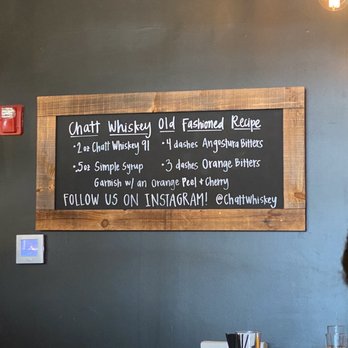 Chatt Whiskey Old Fashioned Recipe
• 2 oz Chatt Whiskey 91 • 4 dashes Angostura Bitters
• .5 oz Simple Syrup • 3 dashes Orange Bitters
Garnish w/ an Orange Peel + Cherry
FOLLOW US ON INSTAGRAM! @ChattWhiskey